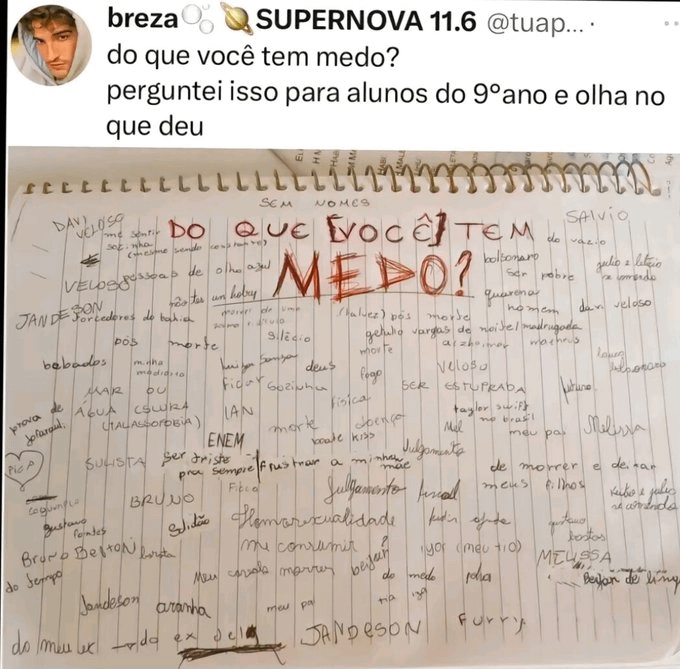 breza 🫧 🪐 SUPERNOVA 11.6 @tuap... ·
do que você tem medo?
perguntei isso para alunos do 9°ano e olha no
que deu
SEM NOMES
DAVI VELOSO
me sentir sozinha (mesmo sendo constante)
DO QUE [VOCÊ] TEM
MEDO?
SALVIO
do vazio
VELOSO
pessoas de olho azul
bolsonaro
ser pobre
julio e leticio se comendo
não ter um hobby
quarena
homem
davi veloso
JANDESON
torcedores do bahia
morrer de uma
(talvez) pós morte
silêcio
getulio vargas de noite/madrugada
alzheimer
matheus
pós morte
morte
bebados
minha
luiza sonza
deus
fogo
VELOSO
bolsonaro
ficar sozinha
SER ESTUPRADA
futuro
MAR OU
ÁGUA ESCURA
(TALASSOFOBIA)
IAN
física
taylor swift no brasil
prova de
morte
doença
Mel
meu pai
Melissa
ENEM
boate kiss
PICA
SULISTA
ser triste pra sempre
frustrar a minha mãe
Julgamento
de morrer e deixar meus filhos
BRUNO
Julgamento final
gustavo pontes
Solidão
Homossexualidade
pedir ajuda
gustavo bastos
Bruno Belton
barata
me consumir
igor (meu tio)
MELISSA
do tempo
Meu cavalo morrer
beijar?
do medo
rolha
Beijar de ling
Jandeson
aranha
meu pai
tia
do meu ex
do ex dela
JANDESON
Furry